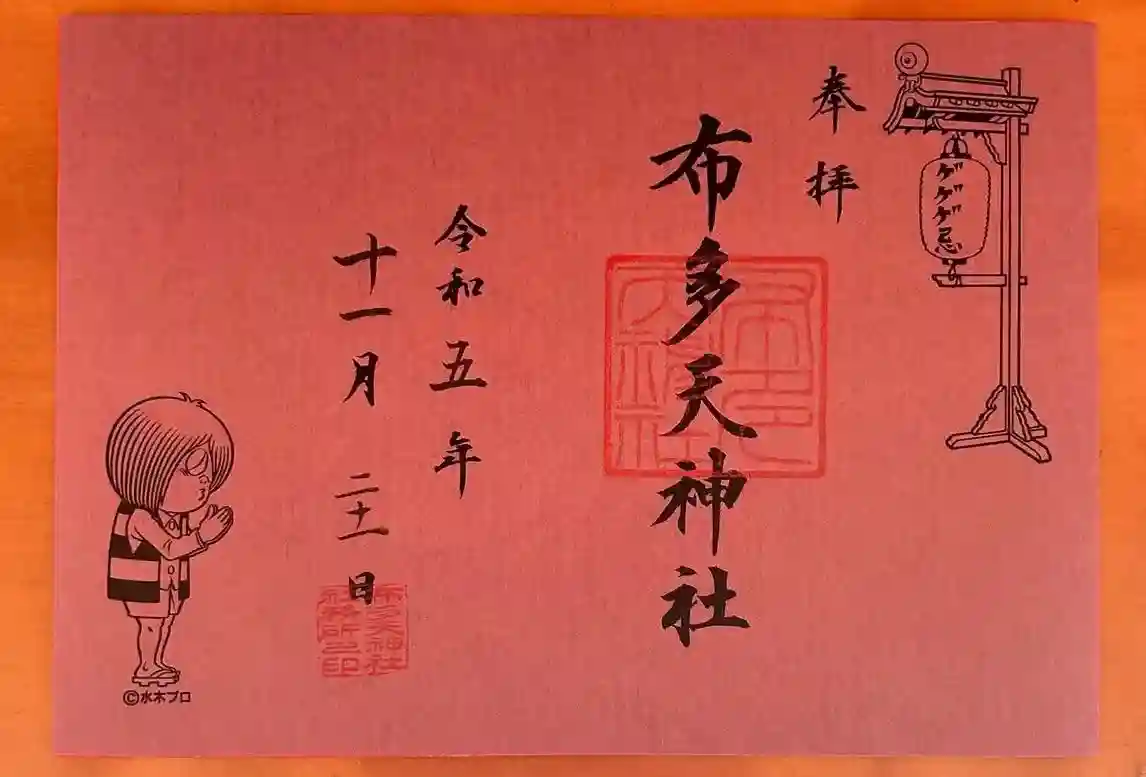 ゲゲゲ忌
奉拝
布多天神社
令和五年
十一月二十一日
布多天神社
社務所之印
©水木プロ